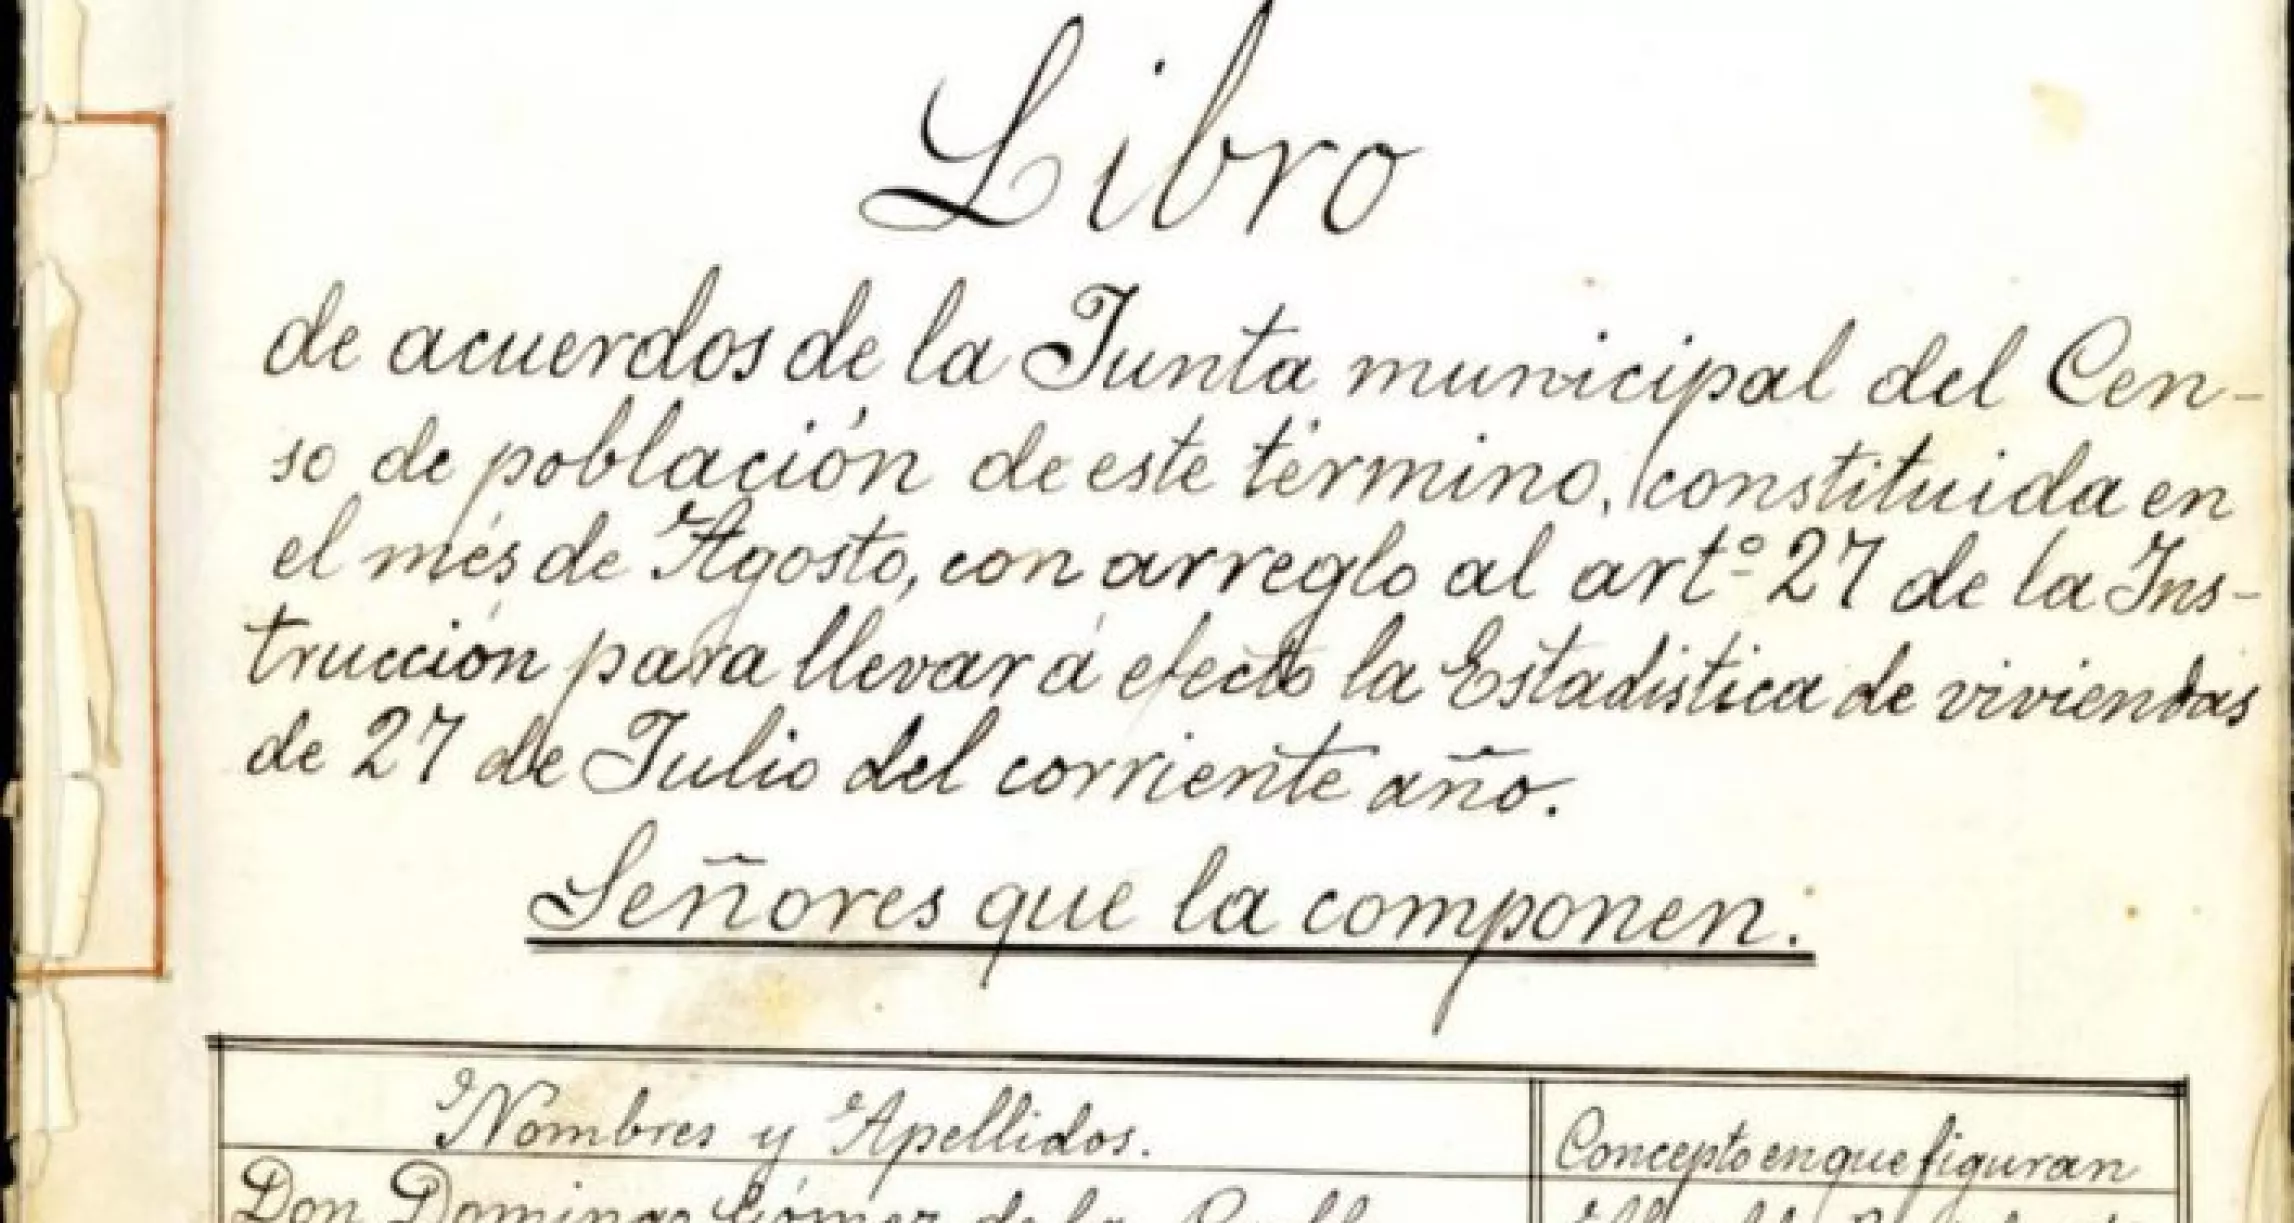 Libro
de acuerdos de la Junta municipal del Cen-
so de población de este término, constituida en
el més de Agosto, con arreglo al artº 27 de la Ins-
trucción para llevar á efecto la Estadistica de viviendas
de 27 de Julio del corriente año.
Señores que la componen:
Nombres y Apellidos.
Concepto en que figuran
Don Domingo Gómez de la